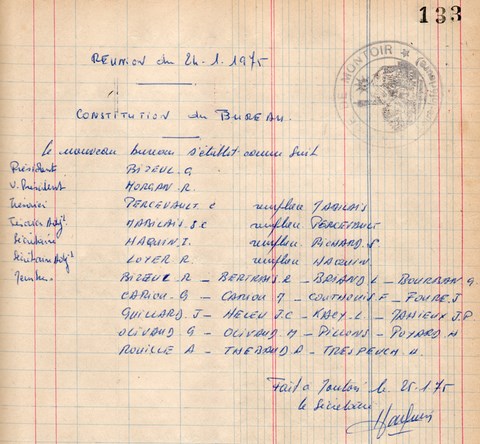 133
MONTOIR
REUNION du 24.1.1975
CONSTITUTION du BUREAU.
Le nouveau bureau s'établit comme suit
Président BIZEUL.G
V. Président MORGAN.R.
Trésorier PERCEVAULT.C remplace MABILAIS
Trésorier Adj. MABILAIS.J.C remplace PERCEVAULT
Secrétaire HAQUIN.J. remplace RICHARD.S
Secrétaire Adj. LOYER R. remplace HAQUIN.
Membres BIZEUL.R - BERTRAND.R - BRIAND L - BOURBAN.G.
CARIOU.G - CARIOU - COUTHOUIS.F - FOURE.J
GUILLARD.J - HELEU J.C - KACY.L - J.P.
OLIVAUD G - OLIVAUD.M - PILLONS - POYARD.H
ROUILLE A - THEBAUD.A - TRESPEUCH H.
Fait à Montoir le 25.1.75
le Secrétaire
Haquin